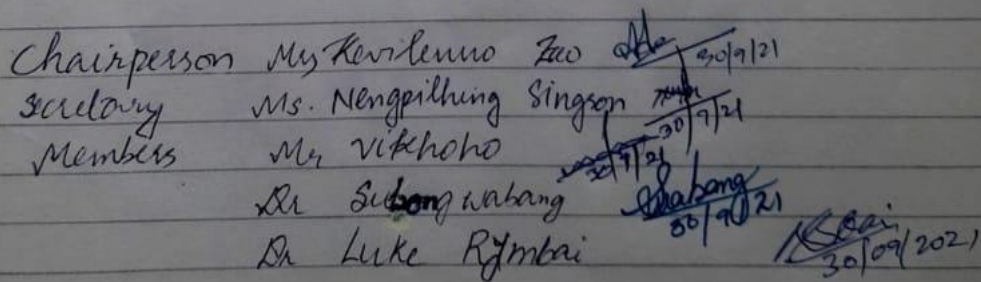 Chairperson Ms Kevilenuo Zao 30/9/21
Secretary Ms. Nengpilhing Singson 30/9/21
Members Mr Vikhoho 30/9/21
Dr Subong wabang 30/9/21
Dr Luke Rymbai 30/09/2021